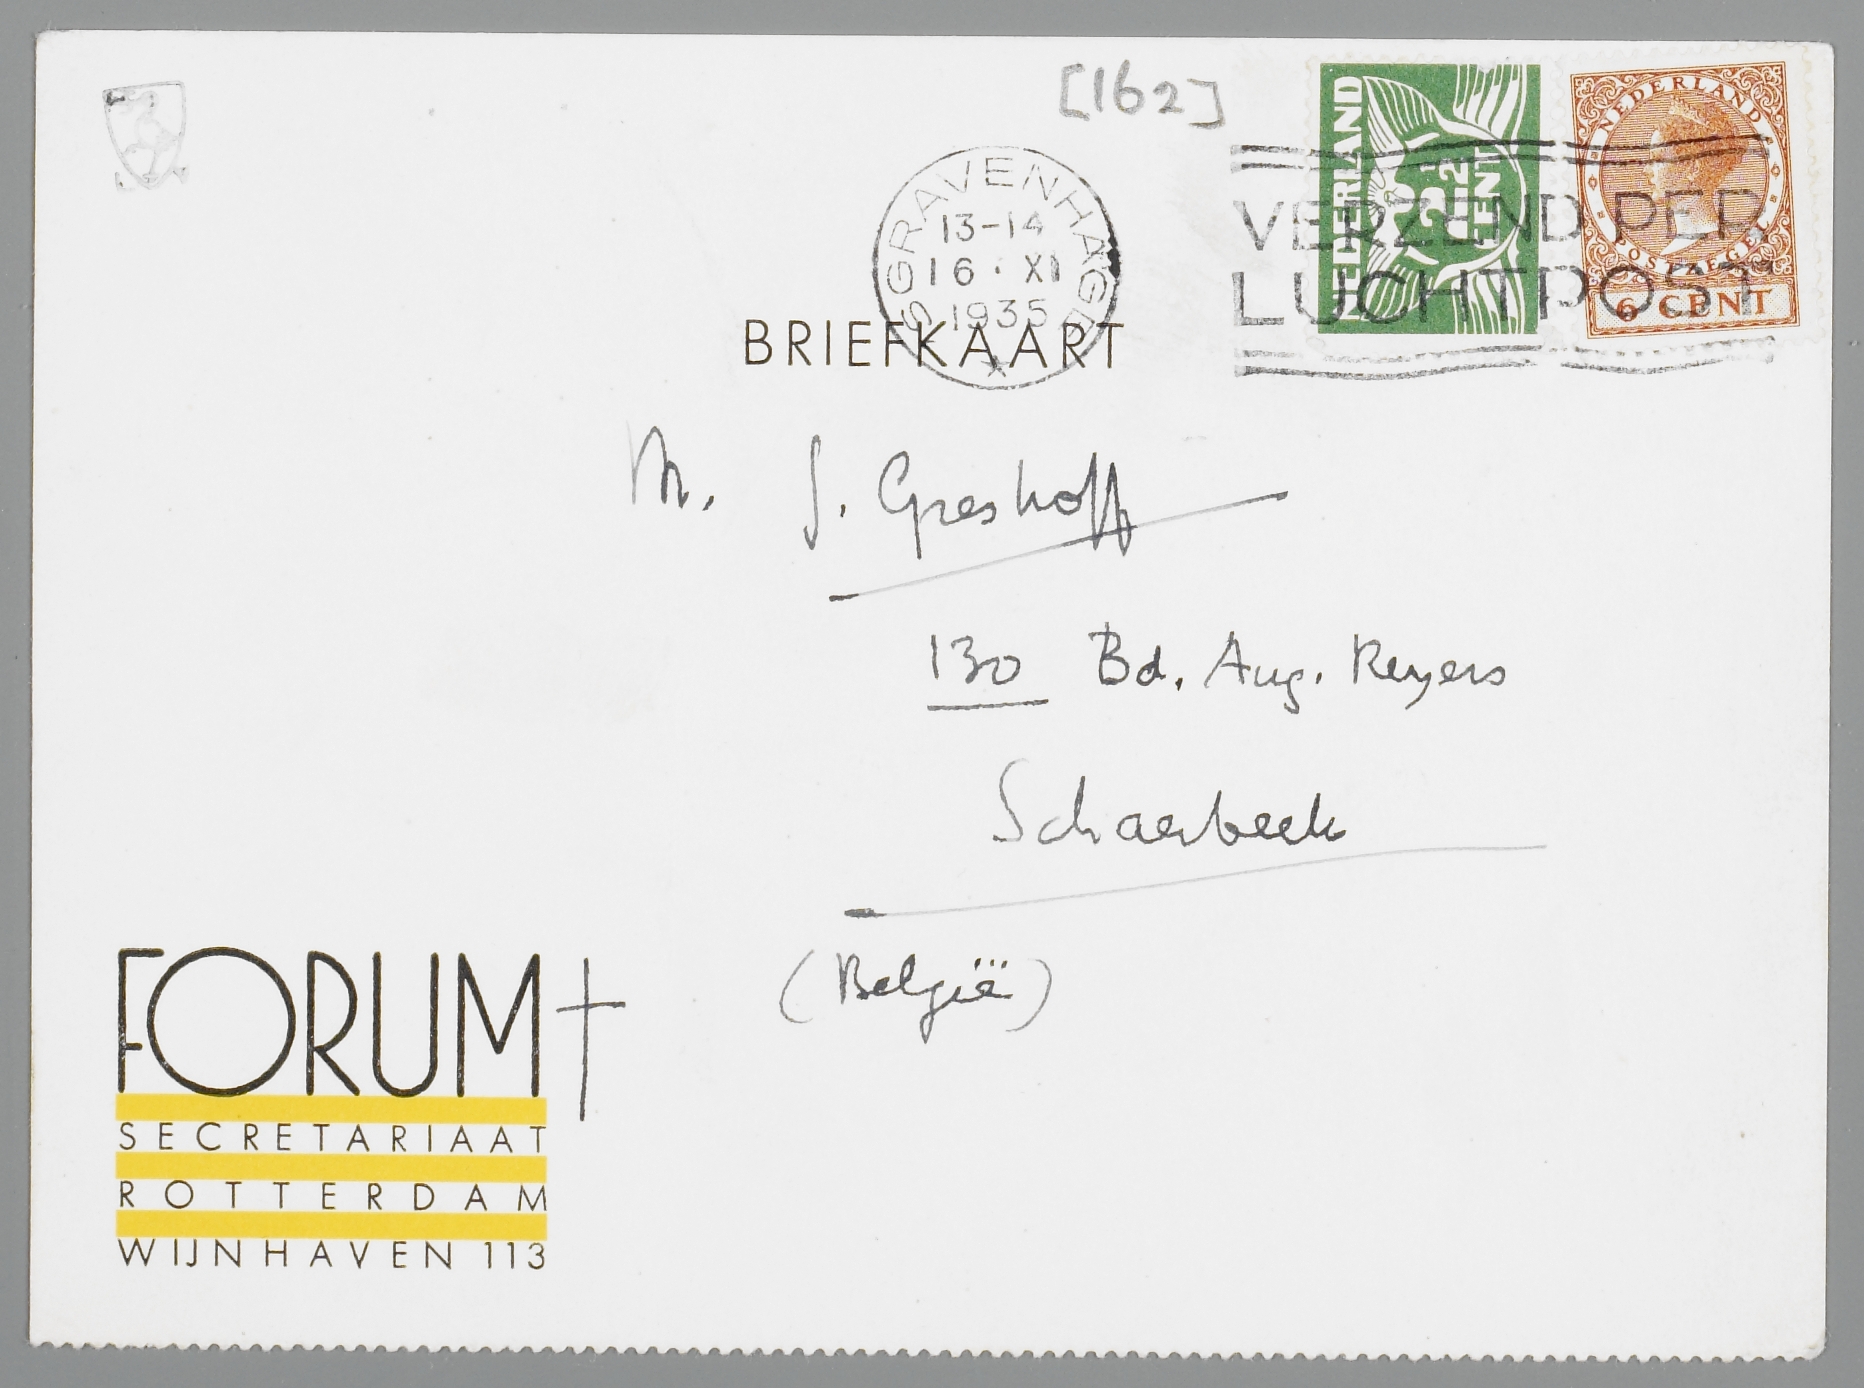 [162]
NEDERLAND
2½ CENT
NEDERLAND
POSTZEGEL
6 CENT
'S GRAVENHAGE
13-14
16·XI
1935
VERZEND PER
LUCHTPOST
BRIEFKAART
M. J. Greshoff
130 Bd. Aug. Reyers
Schaerbeek
(België)
FORUM †
SECRETARIAAT
ROTTERDAM
WIJNHAVEN 113